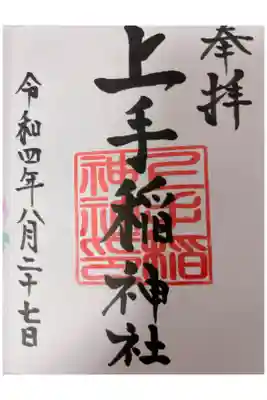 奉拝
上手稲神社
上手稲神社印
令和四年八月二十七日